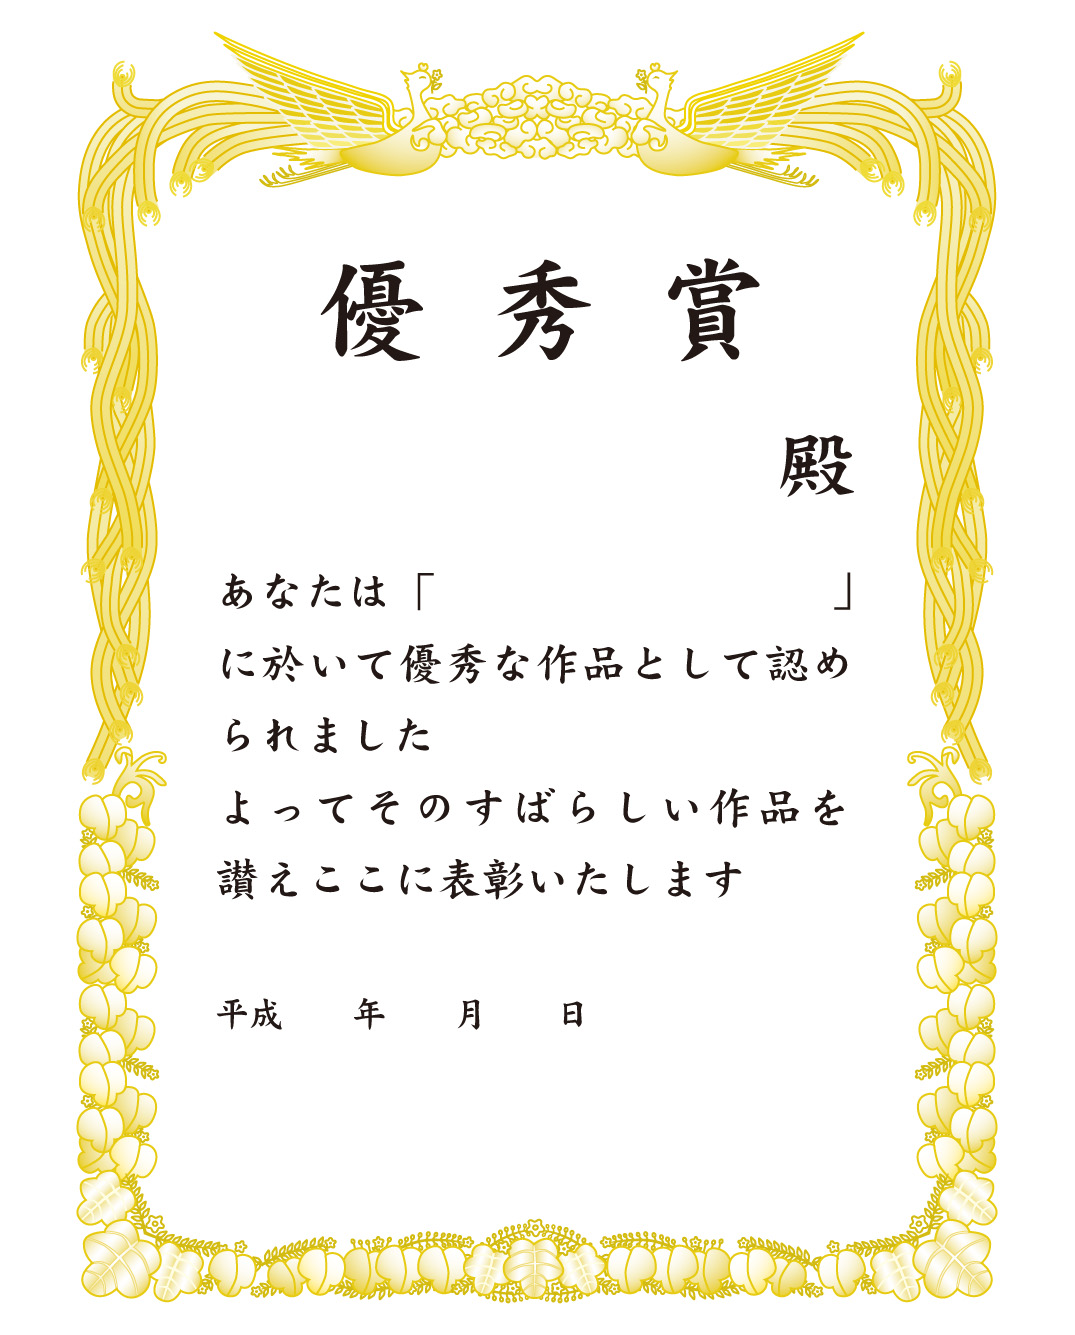 優秀賞
殿
あなたは「　　　　　　　　　」
に於いて優秀な作品として認め
られました
よってそのすばらしい作品を
讃えここに表彰いたします
平成　　年　　月　　日